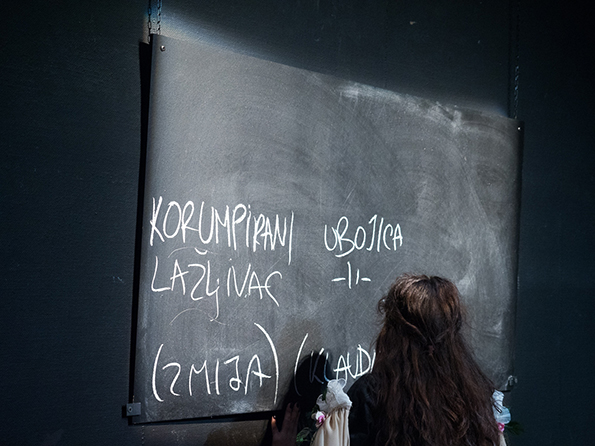 KORUMPIRANI UBOJICA
LAŽLJIVAC -||-
(ZMIJA) (KLAUD